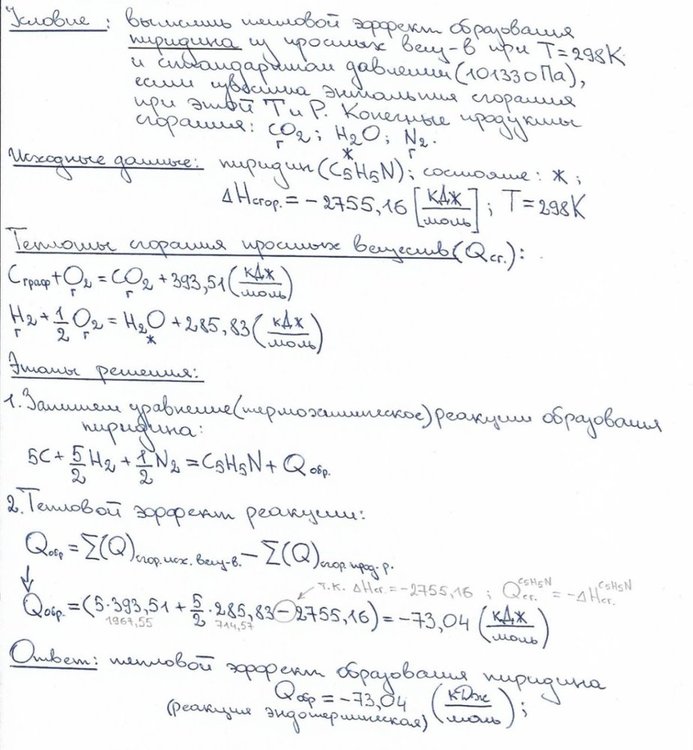 Условие: вычислить тепловой эффект образования
пиридина из простых вещ-в при T=298K
и стандартном давлении (101330 Па),
если известна энтальпия сгорания
при этой T и P. Конечные продукты
сгорания: CO2; H2O; N2.
г ж г
Исходные данные: пиридин (C5H5N); состояние: ж;
ΔHсгор. = -2755,16 [кДж/моль]; T=298K
Теплоты сгорания простых веществ (Qсг.):
Cграф + O2 = CO2 + 393,51 (кДж/моль)
г г
H2 + 1/2 O2 = H2O + 285,83 (кДж/моль)
г г ж
Этапы решения:
1. Запишем уравнение (термохимическое) реакции образования
пиридина:
5C + 5/2 H2 + 1/2 N2 = C5H5N + Qобр.
2. Тепловой эффект реакции:
Qобр = Σ(Q)сгор.исх.вещ-в. - Σ(Q)сгор.прод-р.
т.к. ΔHсг. = -2755,16; Qсг.C5H5N = -ΔHсг.C5H5N
Qобр. = (5·393,51 + 5/2·285,83 - 2755,16) = -73,04 (кДж/моль)
1967,55 714,57
Ответ: тепловой эффект образования пиридина
Qобр = -73,04 (кДж/моль);
(реакция эндотермическая)